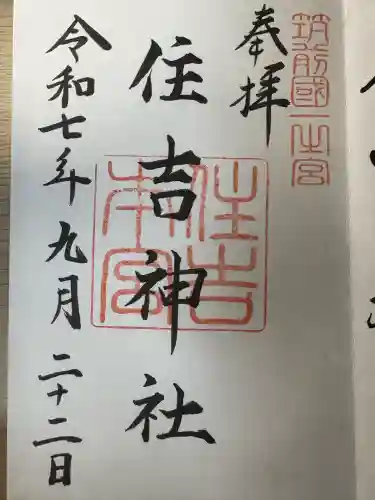 筑前國一之宮
奉拝
住吉神社
住吉本宮
令和七年九月二十二日